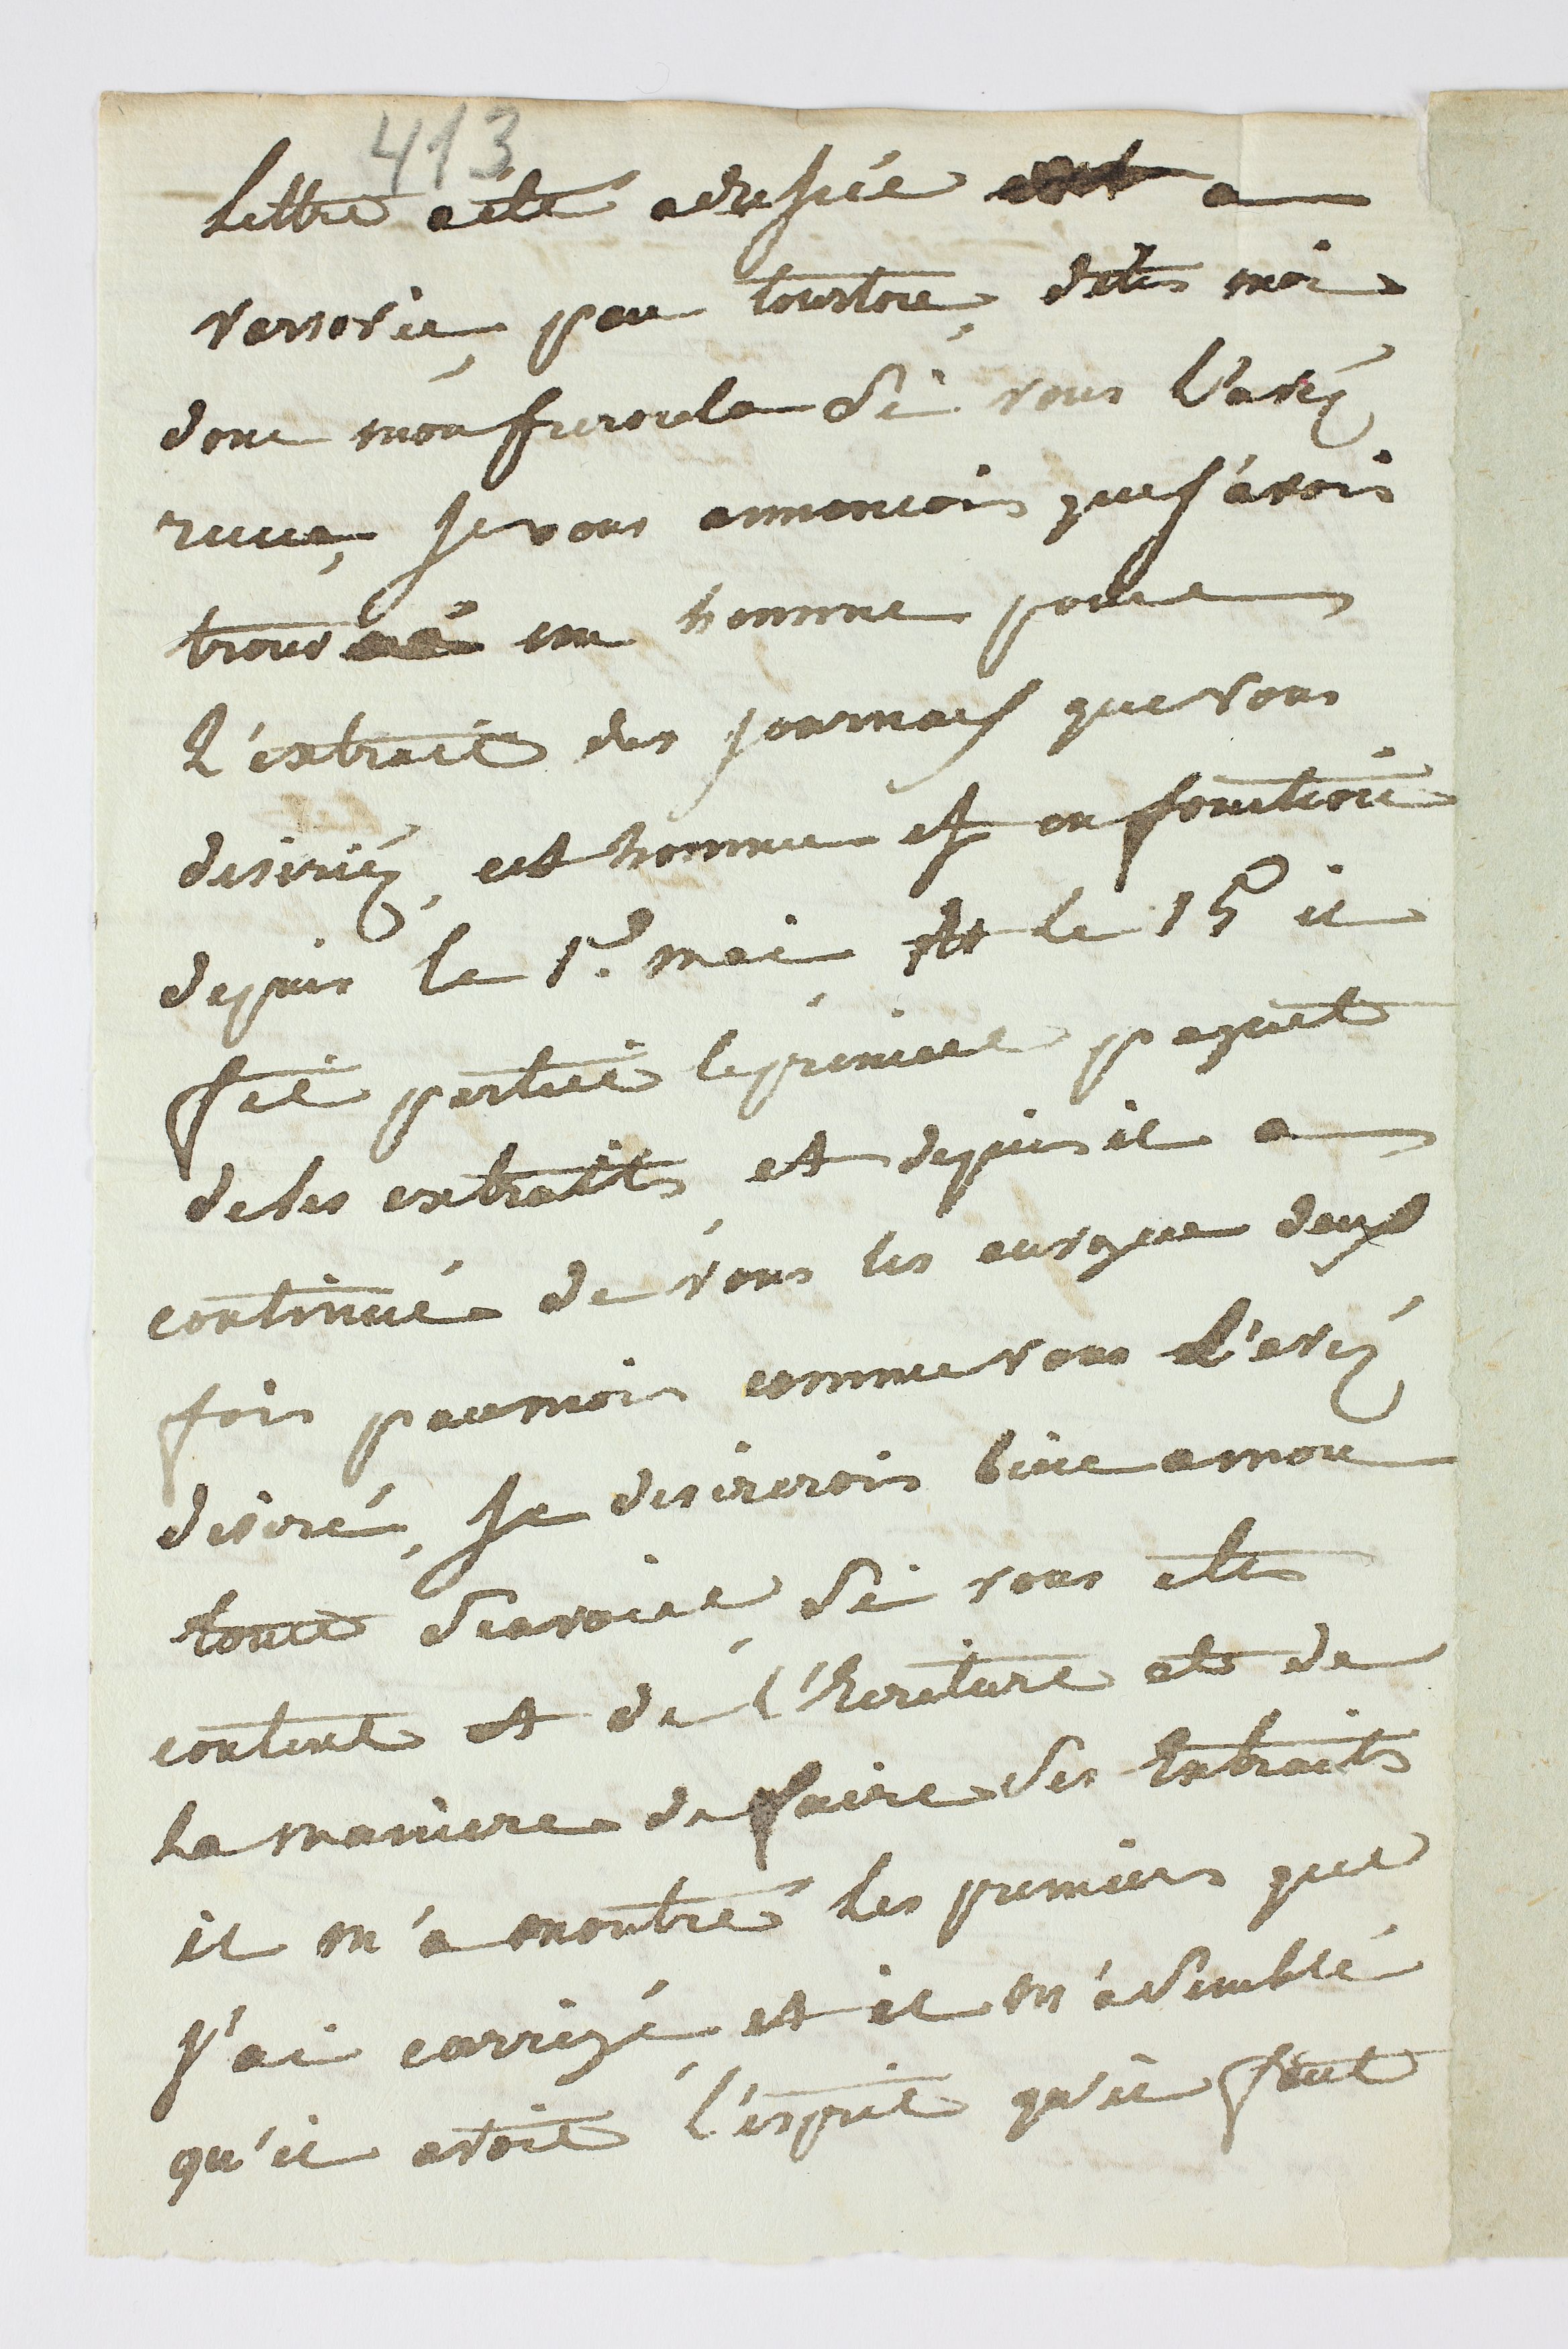 413
Lettre a été adressée a
varsovie, par tourton, dites moi
donc mon frerou la si vous l'avéz
recue, Je vous annoncois que j'avois
trouvé un homme pour
L'extrait des journaux que vous
desiriéz, cet homme est en fonction
depuis le 1er mai et le 15 il
fit partir le premier paquet
de ses extraits, et depuis il a
continué de vous les envoyer deux
fois par mois comme vous l'avéz
desiré, Je desirerois bien a mon
tour scavoir, si vous etes
content et de l'Ecriture et de
la maniere de faire des Extraits
il m'a montré les premiers que
j'ai corrigé, et il m'a semblé
qu'il avoit l'esprit qu'il faut